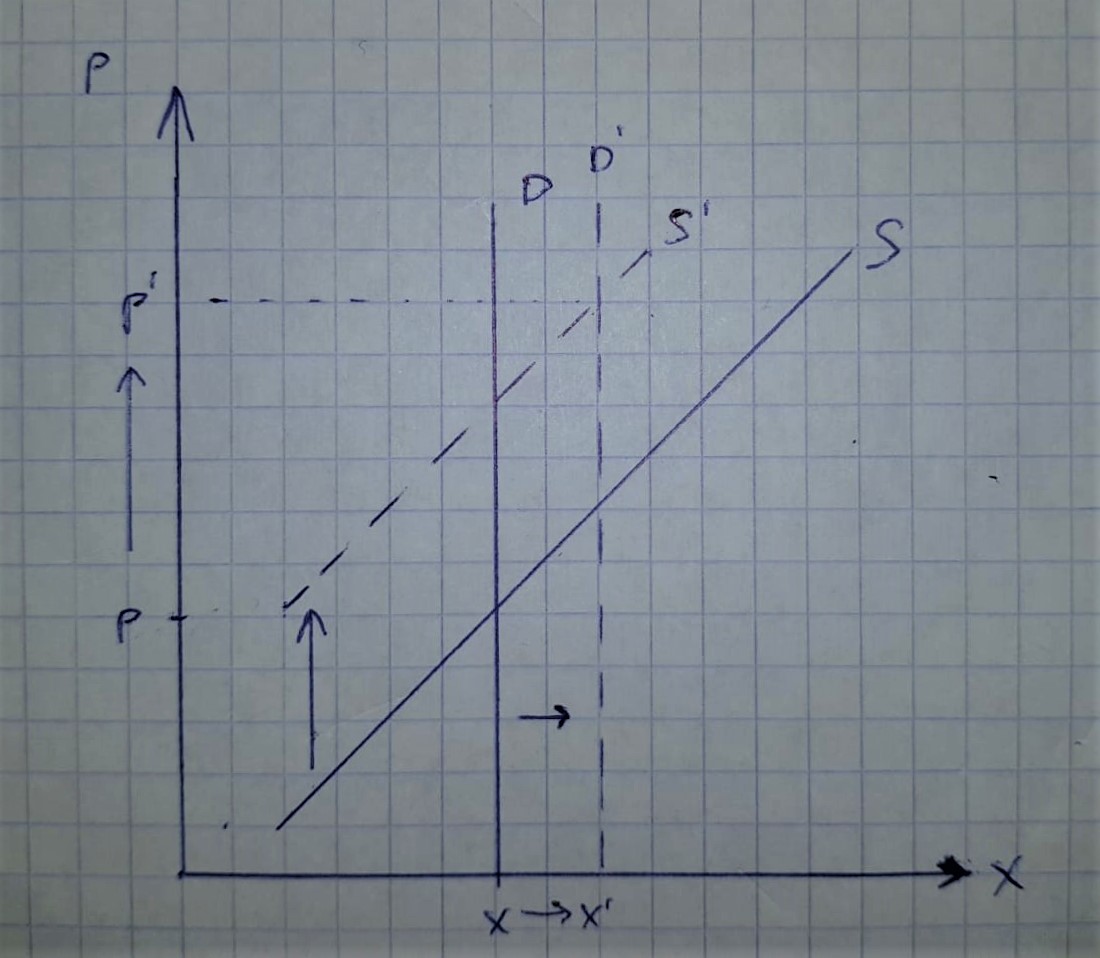 P
D'
D
S'
S
P'
P
X
X → X'